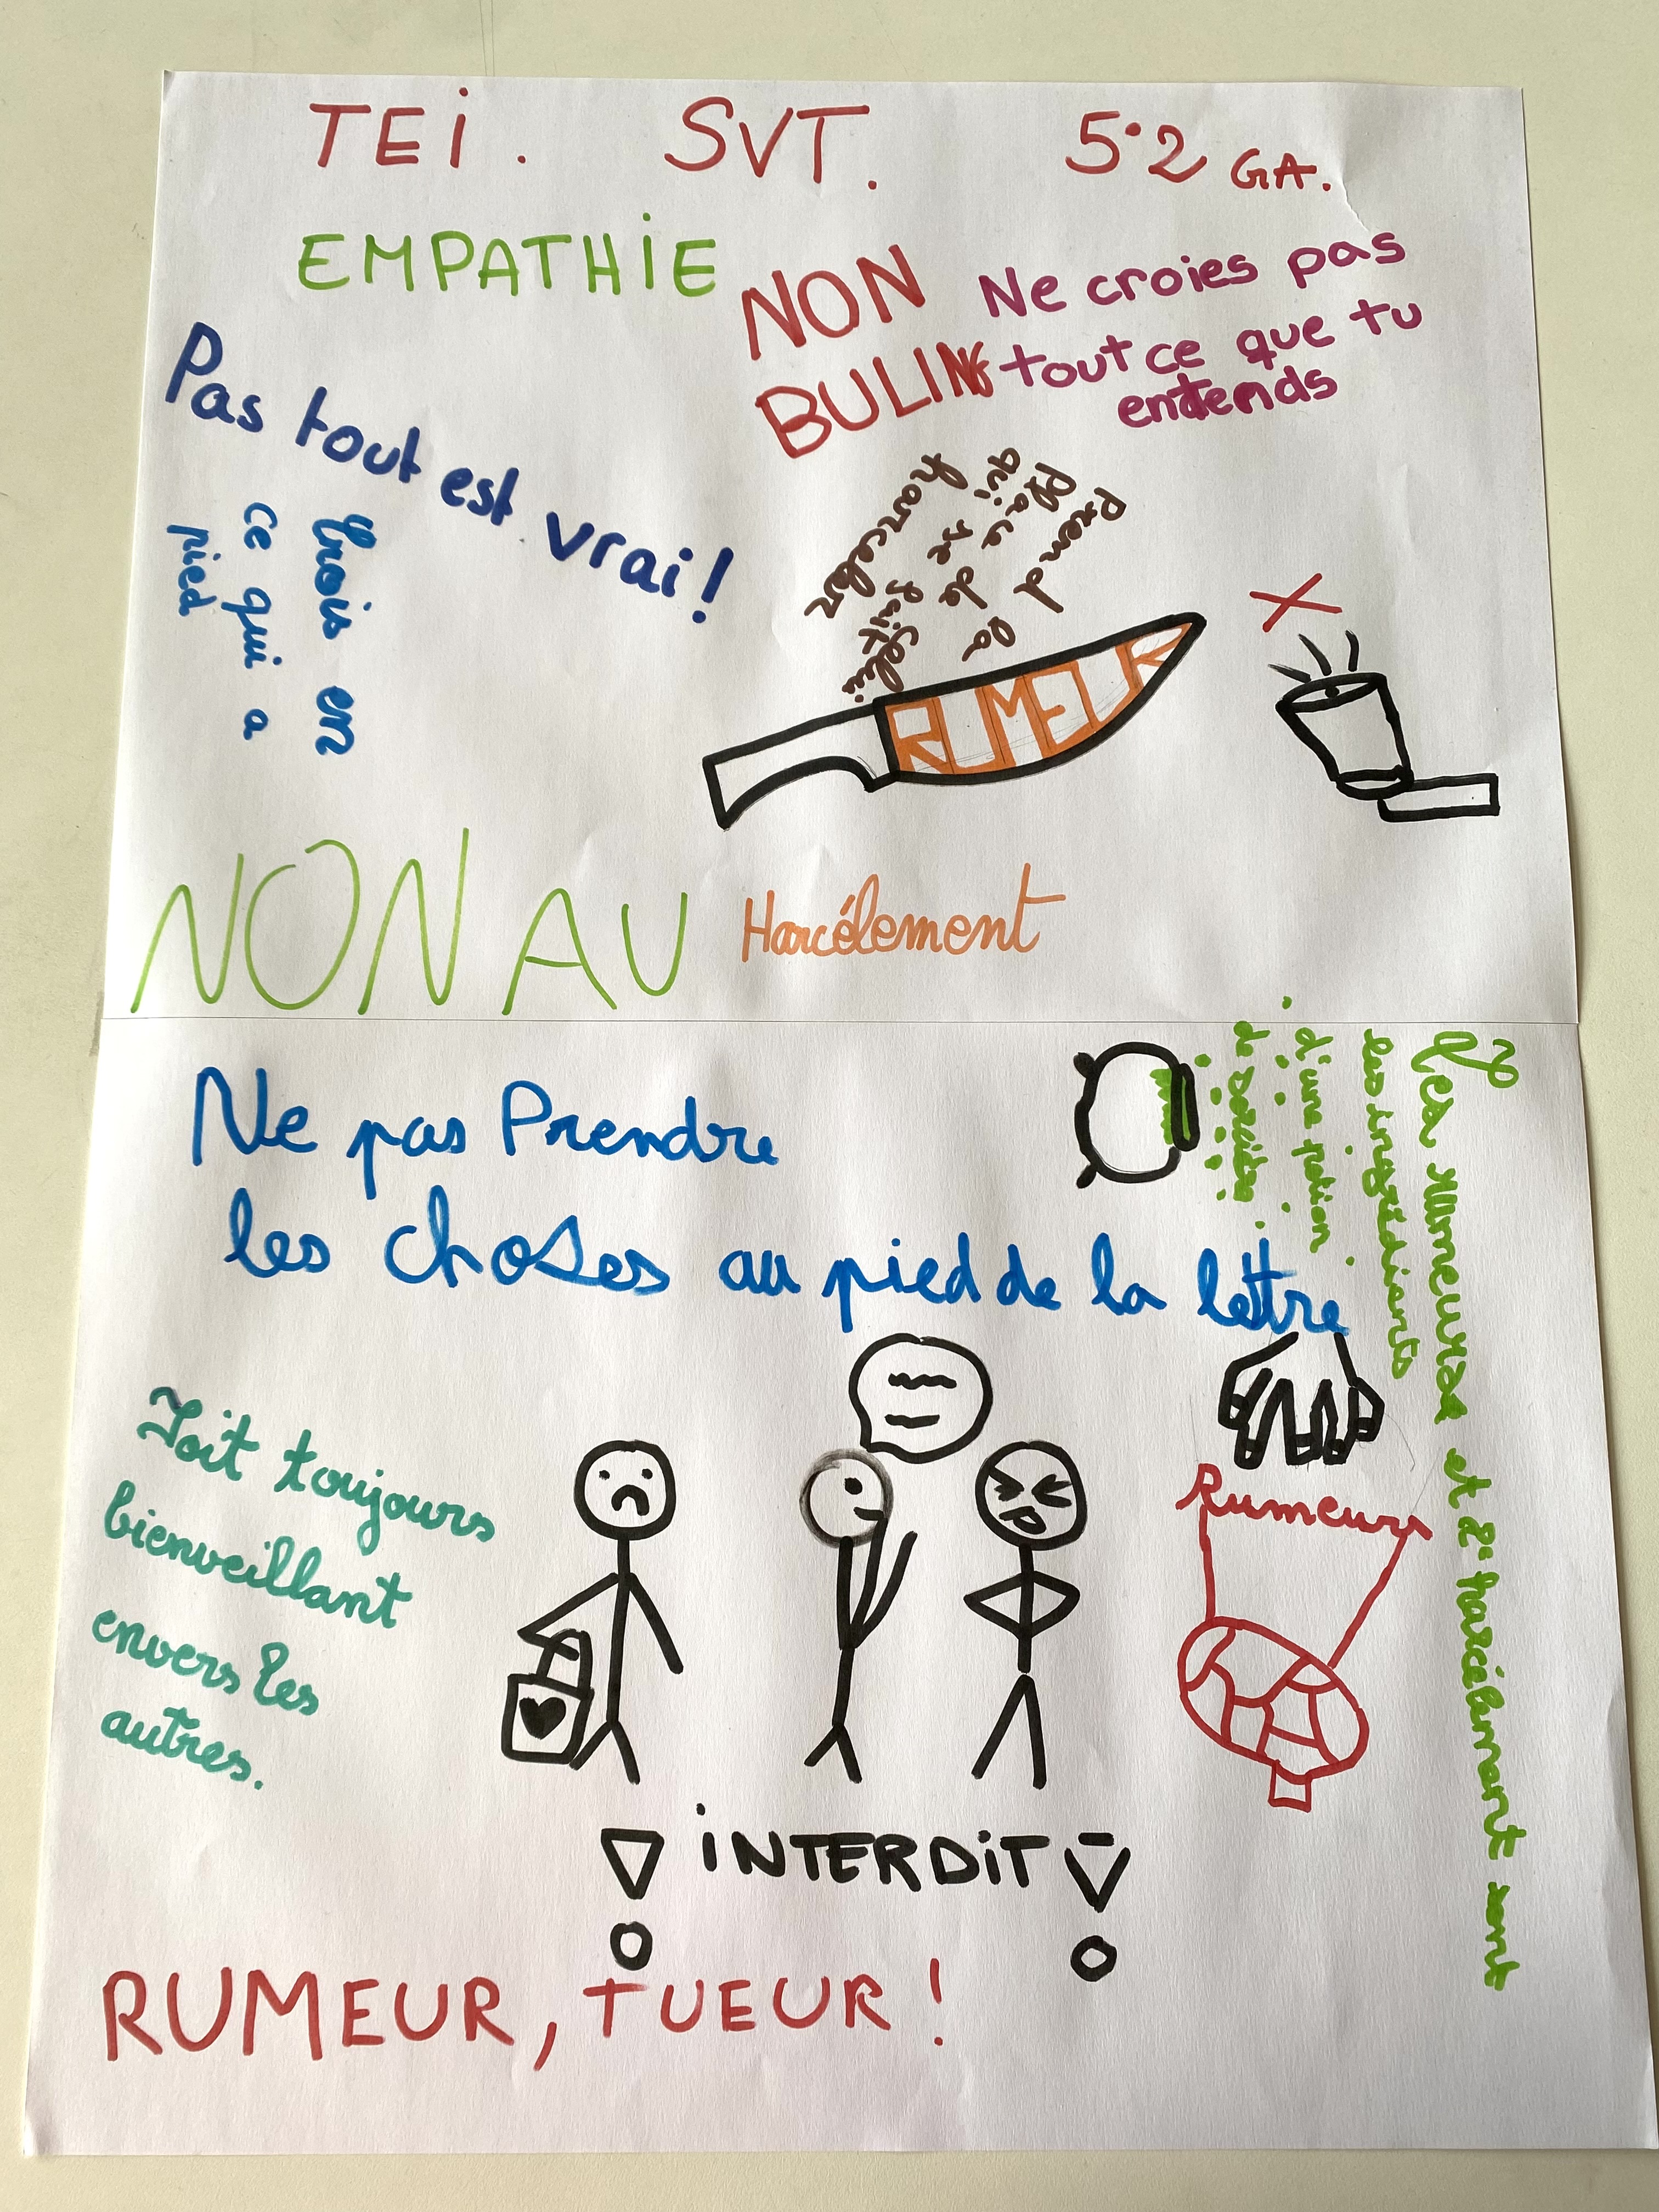 TEi. SVT. 5°2 GA.
EMPATHiE
NON
BULING
Ne croies pas
tout ce que tu
entends
Pas tout est vrai!
Crois en
ce qui a
pied
Prend la
place de celui
qui se fait
harceler
RUMEUR
NON AU Harcélement
Ne pas Prendre
les choses au pied de la lettre
Les rumeurs et l'harcélement sont
les ingrédients
d'une potion
de
Soit toujours
bienveillant
envers les
autres.
Rumeurs
iNTERDiT
RUMEUR, TUEUR !